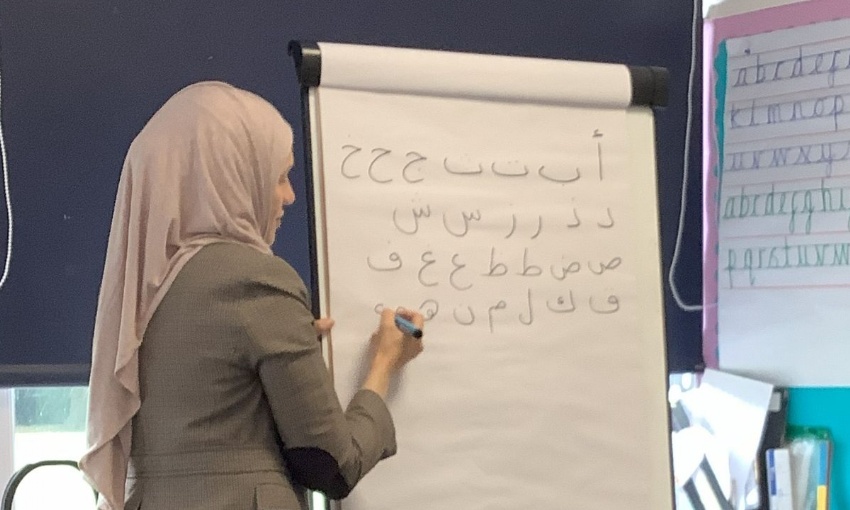 أ ب ت ث ج ح خ
د ذ ر ز س ش
ص ض ط ظ ع غ ف
ق ك ل م ن ه
abcdef
klmnop
uvwxy
abcdefghi
pqrstuvw